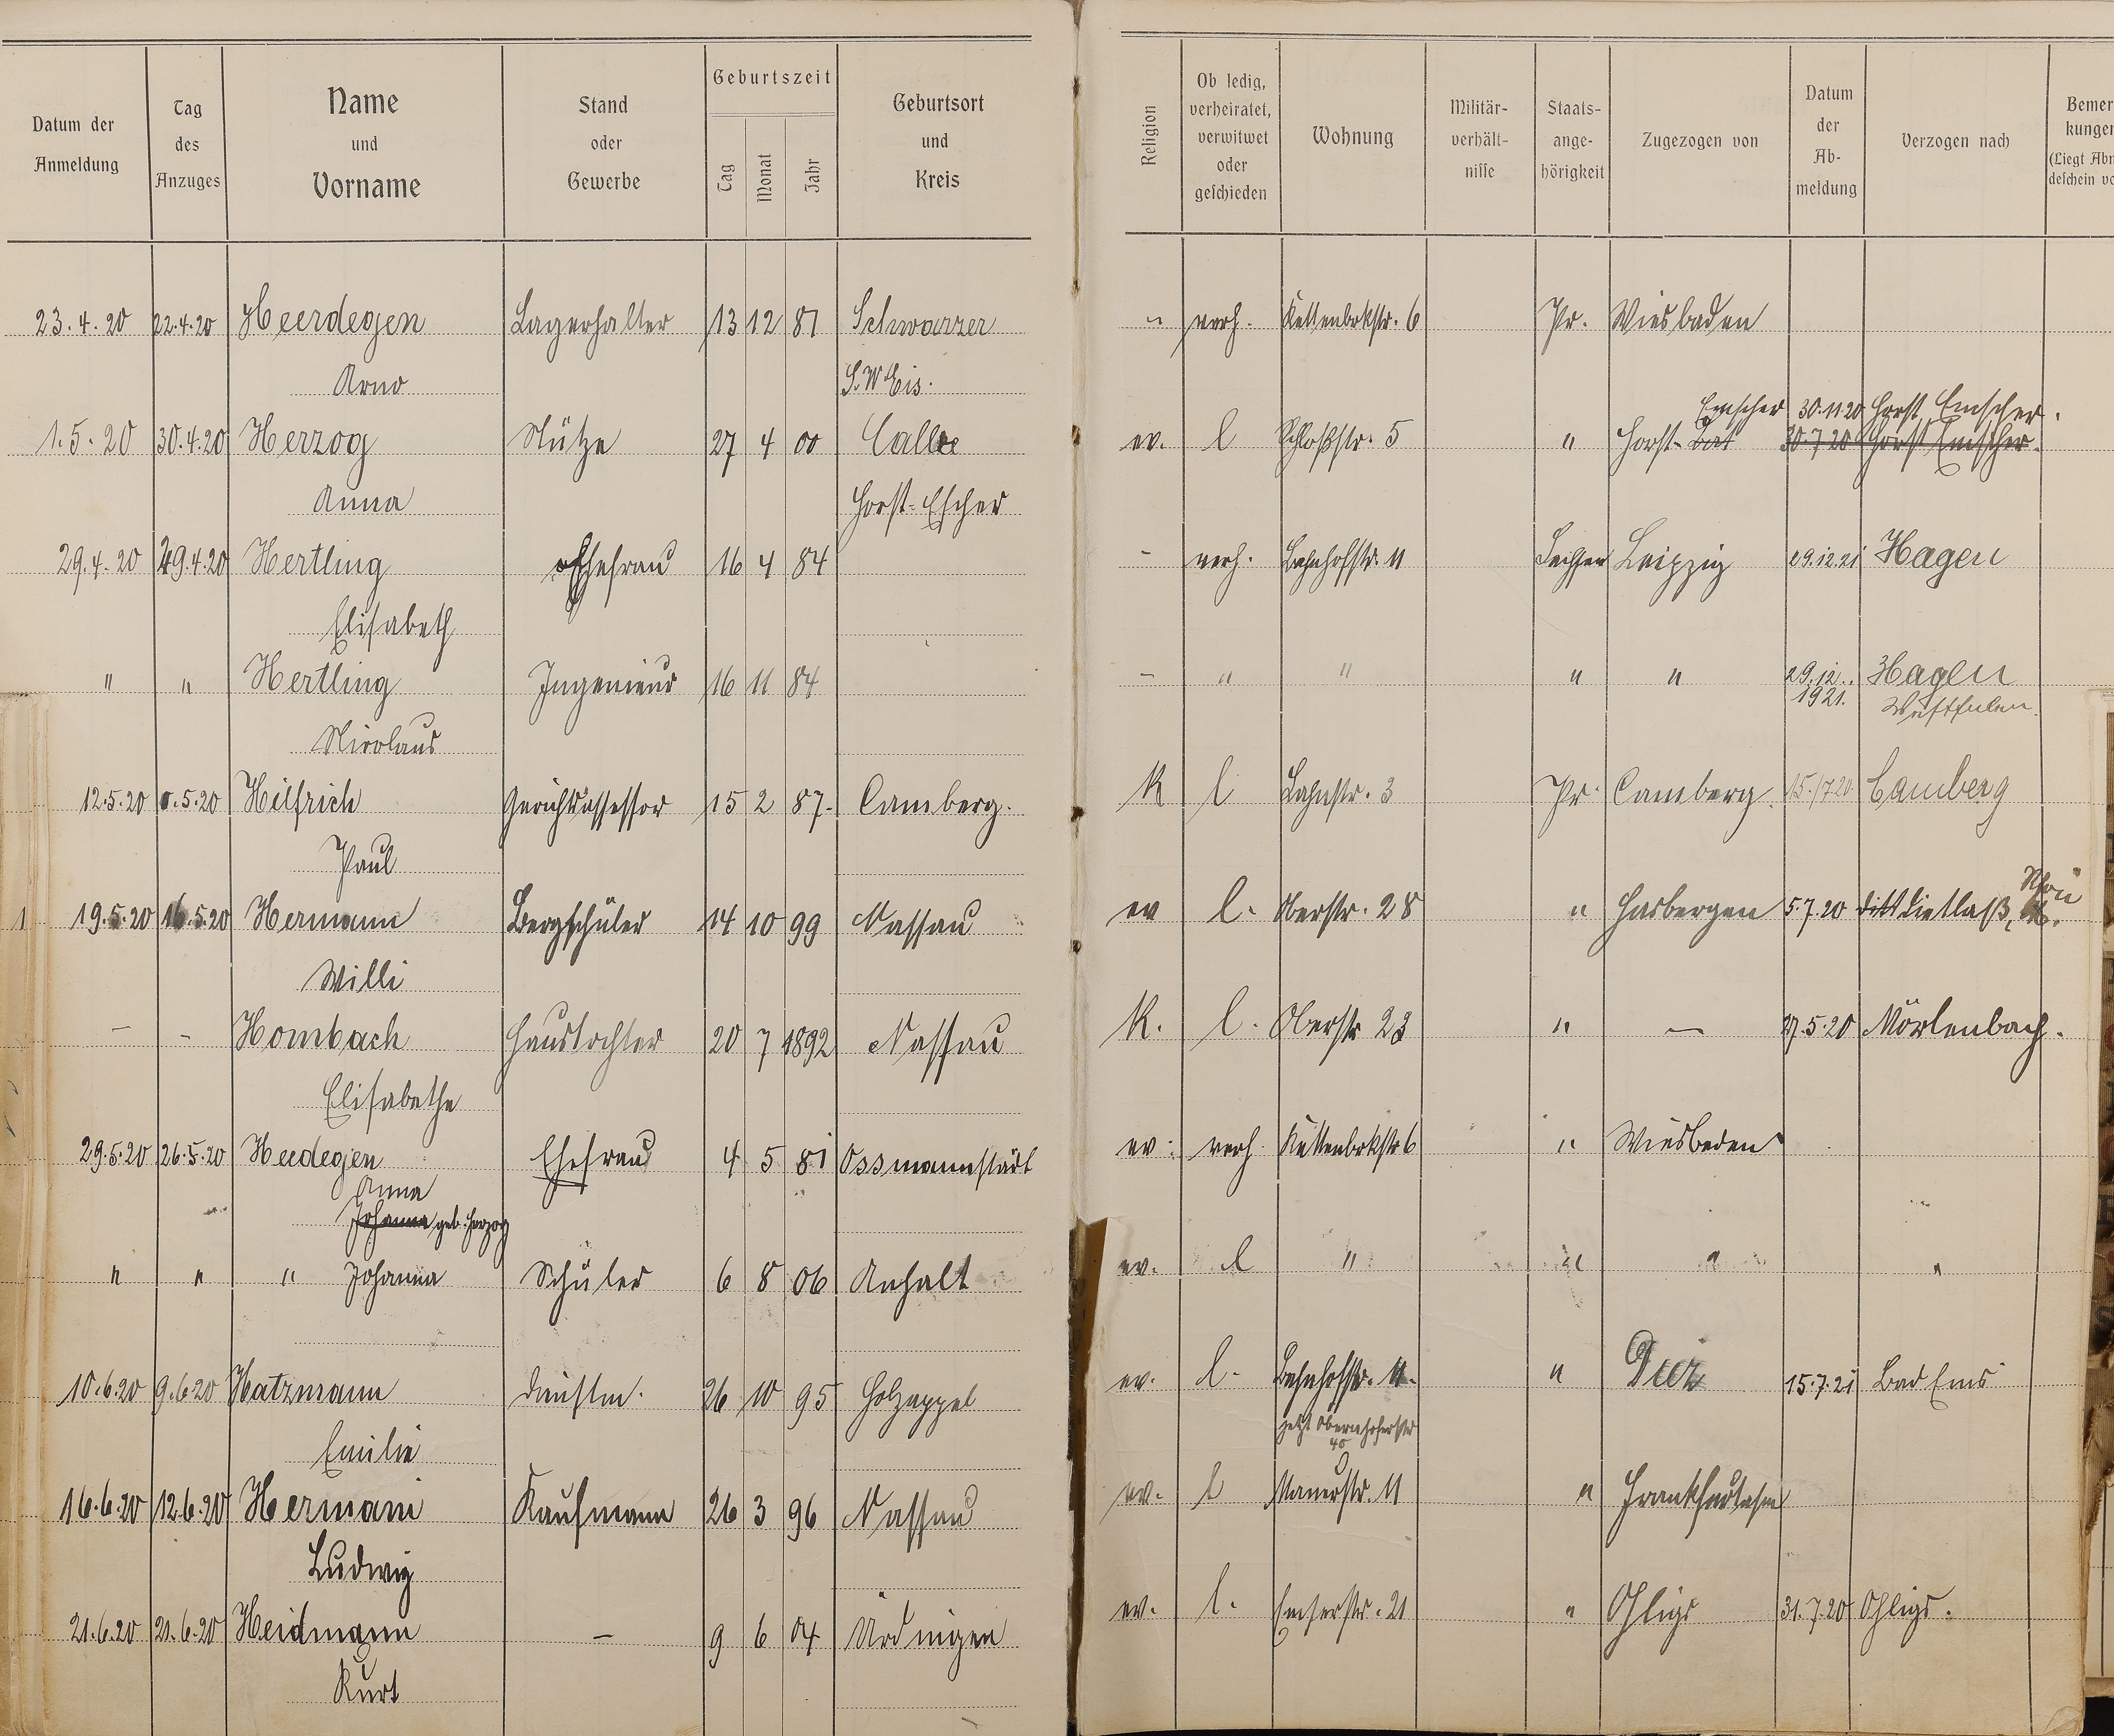 Datum der Anmeldung | Tag des Anzuges | Name und Vorname | Stand oder Gewerbe | Geburtszeit Tag Monat Jahr | Geburtsort und Kreis | Religion | Ob ledig, verheiratet, verwitwet oder geschieden | Wohnung | Militär-verhält-nisse | Staats-ange-hörigkeit | Zugezogen von | Datum der Ab-meldung | Verzogen nach | Bemer kungen (Liegt Abm deschein vo
23.4.20 22.4.20 Heerdegen Lagerhalter 13 12 81 Schwarzer " verh. Kettenbrkstr. 6 Pr. Wiesbaden
Arno S.W Eis.
Emscher 30.11.20 Horst, Emscher.
1.5.20 30.4.20 Herzog Stütze 27 4 00 Calle ev. l Schloßstr. 5 " Horst- 30.7.20 Horst Emscher.
Anna Horst-Escher
29.4.20 29.4.20 Hertling Ehefrau 16 4 84 - verh. Bahnhofstr. 11 Sachsen Leipzig 29.12.21 Hagen
Elisabeth
" " Hertling Ingenieur 16 11 84 - " " " " 29.12. 1921. Hagen
Westfalen.
Nicolaus
12.5.20 .5.20 Hilfrich Gerichtsassessor 15 2 87- Camberg. K l Lahnstr. 3 Pr. Camberg. 15./7 20. Camberg
Paul
1 19.5.20 16.5.20 Hermann Bergschüler 14 10 99 Nassau ev l. Oberstr. 28 " Hasbergen 5.7.20 Dietlas,
Willi
- - Hombach Haustochter 20 7 1892 Nassau K. l. Oberstr 23 " - 27.5.20 Mörlenbach.
Elisabethe
29.5.20 26.5.20 Heedegen Ehefrau 4 5 81 Ossmannstädt ev. verh. Kettenbrkstr 6 " Wiesbaden
Anna
Johanna geb. Herzog
" " " Johanna Schüler 6 8 06 Anhalt ev. l " " " "
10.6.20 9.6.20 Hatzmann Dienstm. 26 10 95 Holzappel ev. l. Bahnhofstr. 11. " Diez 15.7.21 Bad Ems
jetzt Obernhoferstr
40
Emilie
16.6.20 12.6.20 Hermani Kaufmann 26 3 96 Nassau ev. l Mauerstr. 11 " Frankfurt a/m
Ludwig
21.6.20 21.6.20 Heidmann - 9 6 04 Ürdingen ev. l. Emserstr. 21 " Ohligs 31.7.20 Ohligs.
Kurt